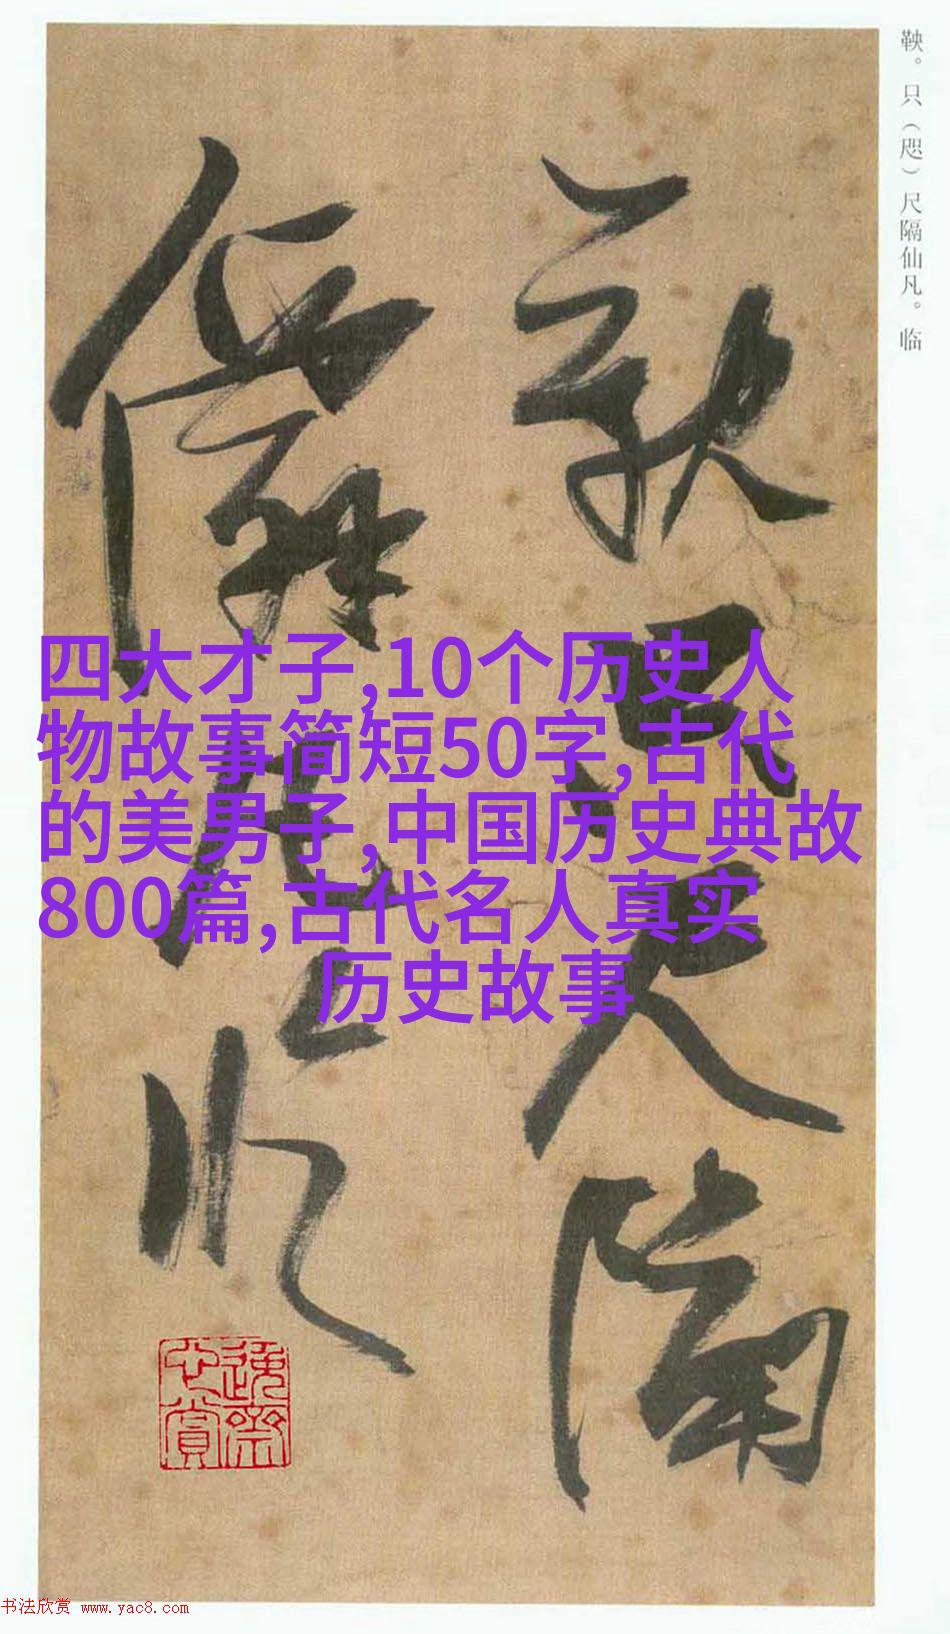 鞅。只（咫）尺隔仙凡。临
歌只尺隔
僊凡临
四大才子,10个历史人
物故事简短50字,古代
的美男子,中国历史典故
800篇,古代名人真实
历史故事
书法欣赏 www.yac8.com